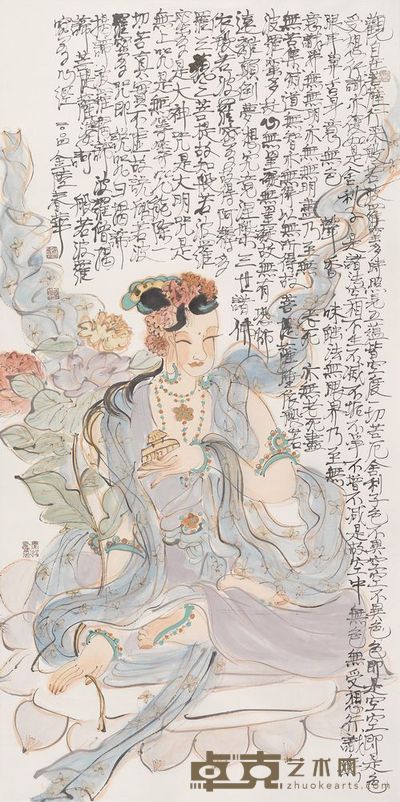 觀自在菩薩行深般若波羅蜜多時照見五蘊皆空度一切苦厄舍利子色不異空空不異色色即是空空即是色
受想行識亦復如是舍利子是諸法空相不生不滅不垢不淨不增不減是故空中無色無受想行識
眼耳鼻舌身意無色聲香味觸法無眼界乃至無
意識界無無明亦無無明盡乃至無老死亦無老死盡
無苦集滅道無智亦無得以無所得故菩提薩埵依般若
波羅蜜多故心無罣礙無罣礙故無有恐怖
遠離顛倒夢想究竟涅槃三世諸佛
依般若波羅蜜多故得阿耨多
羅三藐三菩提故知般若波羅
蜜多是大神咒是大明咒是
無上咒是無等等咒能除一
切苦真實不虛故說般若波
羅蜜多咒即說咒曰揭諦
揭諦波羅揭諦波羅僧揭
諦菩提薩婆訶般若波羅
蜜多心經
卓克艺术网
www.zhuokearts.com